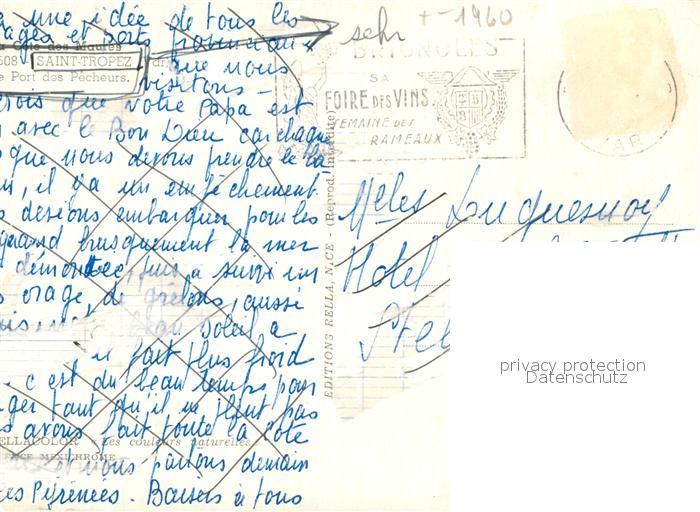 une idée de tous les
ages et ports provençaux
que nous
visitons -
crois que votre Papa est
avec le Bon Dieu car chaque
que nous devons prendre le
, il y a un empêchement.
desions embarquer pour les
quand brusquement la mer
démontée, puis a suivi un
orage, de grêlons, aussi
beau soleil a
il fait plus froid
c est du beau temps pour
ager tant qu'il ne pleut pas
avons fait toute la Côte
et nous partons demain
les Pyrénées. Baisers à tous
Côte des Maures
SAINT-TROPEZ
Port des Pêcheurs.
RELLACOLOR « Les couleurs naturelles
MEXICHROME
EDITIONS RELLA, NICE - (Reprod. interdite)
sehr
+-1960
BRIGNOLES
SA
FOIRE DES VINS
SEMAINE DES
RAMEAUX
VAR
Melles Duquesnoy
Hotel
Stel
privacy protection
Datenschutz